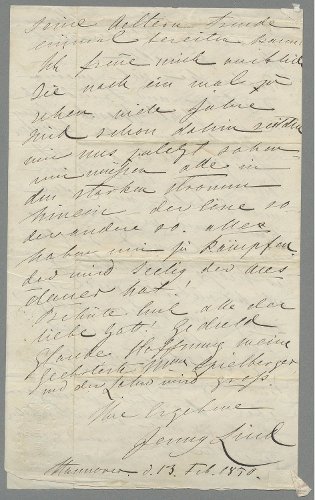 einmal bereiten kann.
Ich freue mich
Sie noch ein mal zu
sehen viele Jahre
sind schon dahin seitdem
wir uns zuletzt sahen
wir müssen alle in
den starken Stromm
hinein der eine so
der andere so. alles
haben wir zu kämpfen
der wird seelig der das
Behüte Euch alle der
liebe Gott! Geduld
Glaube Hoffnung meine
Spielberger
und der Lohn wird groß.
Ihre Ergebene
Jenny Lind
Hannover d. 13. Feb. 1850.